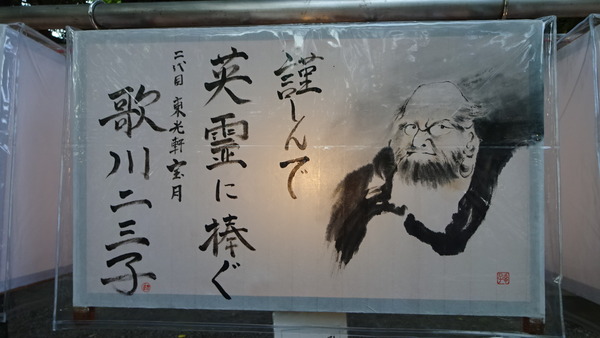 謹しんで
英霊に捧ぐ
二代目 東光軒宝月
歌川二三子